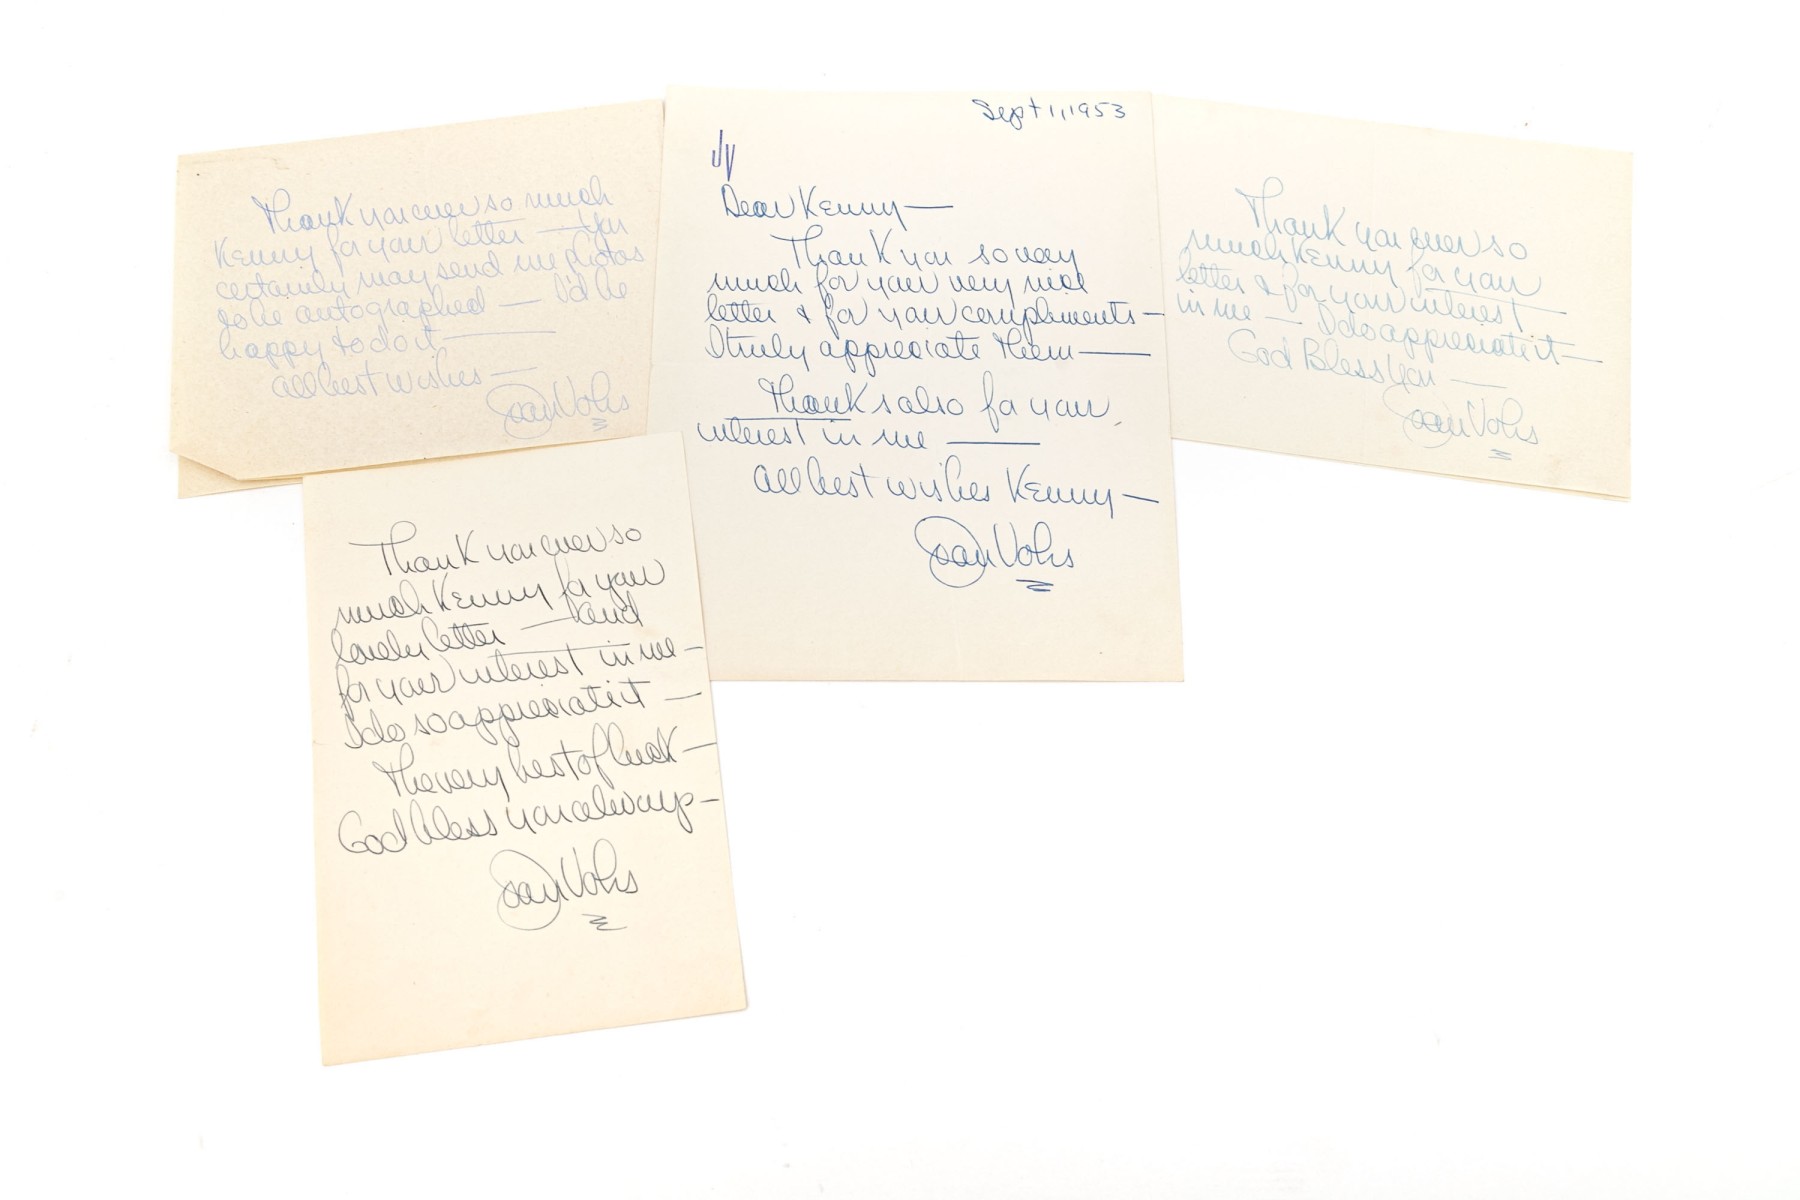 Thank you ever so much
Kenny for your letter — You
certainly may send me photos
to be autographed — I'd be
happy to do it —
All best wishes —
Joan Vohs
Sept 1, 1953
JV
Dear Kenny —
Thank you so very
much for your very nice
letter & for your compliments —
I truly appreciate them —
Thanks also for your
interest in me —
All best wishes Kenny —
Joan Vohs
Thank you ever so
much Kenny for your
letter & for your interest
in me — I do appreciate it —
God Bless You —
Joan Vohs
Thank you ever so
much Kenny for your
lovely letter — and
for your interest in me —
I do so appreciate it —
The very best of luck —
God bless you always —
Joan Vohs